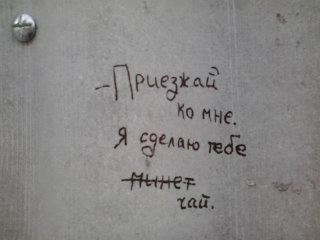 - Приезжай
ко мне.
Я сделаю тебе
минет
чай.